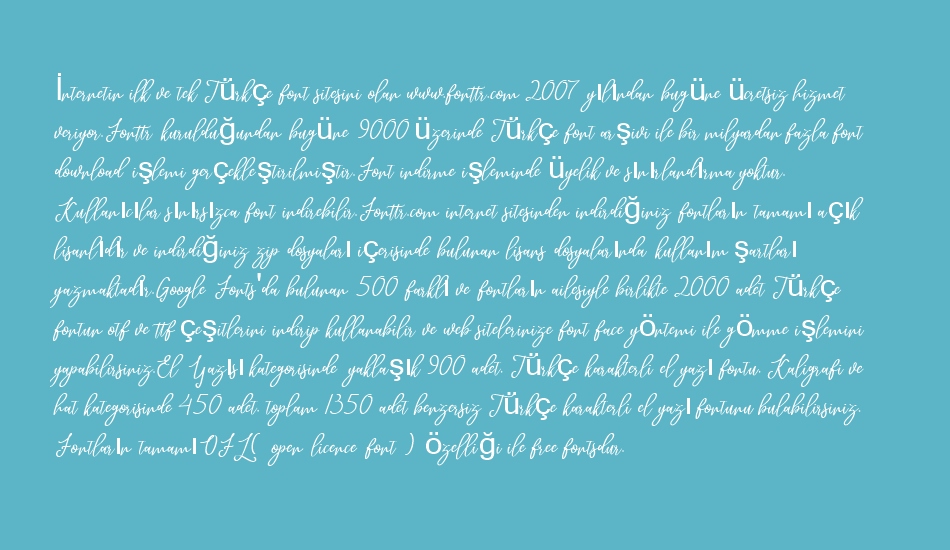 İnternetin ilk ve tek Türkçe font sitesini olan www.fonttr.com 2007 yılından bugüne ücretsiz hizmet
veriyor.Fonttr kurulduğundan bugüne 9000 üzerinde Türkçe font arşivi ile bir milyardan fazla font
download işlemi gerçekleştirilmiştir.Font indirme işleminde üyelik ve sınırlandırma yoktur.
Kullanıcılar sınırsızca font indirebilir.Fonttr.com internet sitesinden indirdiğiniz fontların tamamı açık
lisanlıdır ve indirdiğiniz zip dosyaları içerisinde bulunan lisans dosyalarında kullanım şartları
yazmaktadır.Google Fonts'da bulunan 500 farklı ve fontların ailesiyle birlikte 2000 adet Türkçe
fontun otf ve ttf çeşitlerini indirip kullanabilir ve web sitelerinize font face yöntemi ile gömme işlemini
yapabilirsiniz.El Yazısı kategorisinde yaklaşık 900 adet. Türkçe karakterli el yazı fontu, Kaligrafi ve
hat kategorisinde 450 adet. toplam 1350 adet benzersiz Türkçe karakterli el yazı fontunu bulabilirsiniz.
Fontların tamamı OFL( open licence font ) özelliği ile free fontsdur.